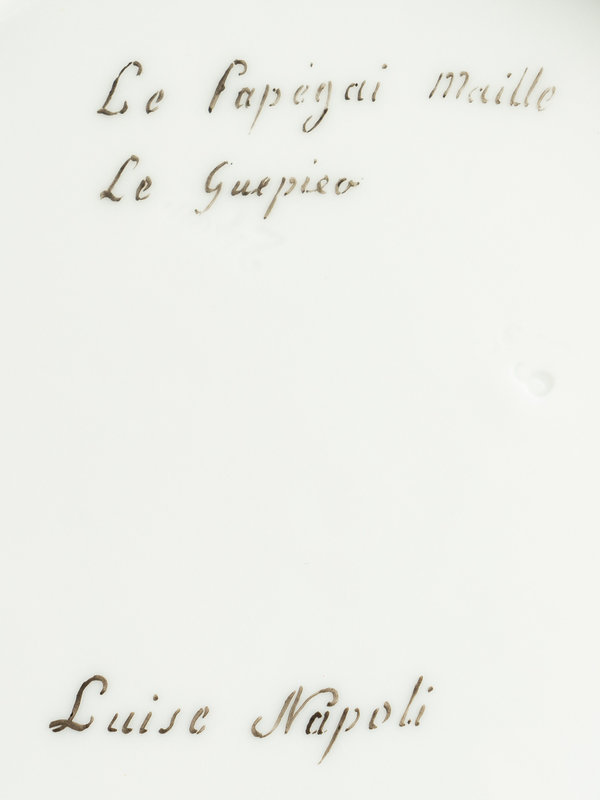 Le Papégai Maille
Le Guepier
Luise Napoli